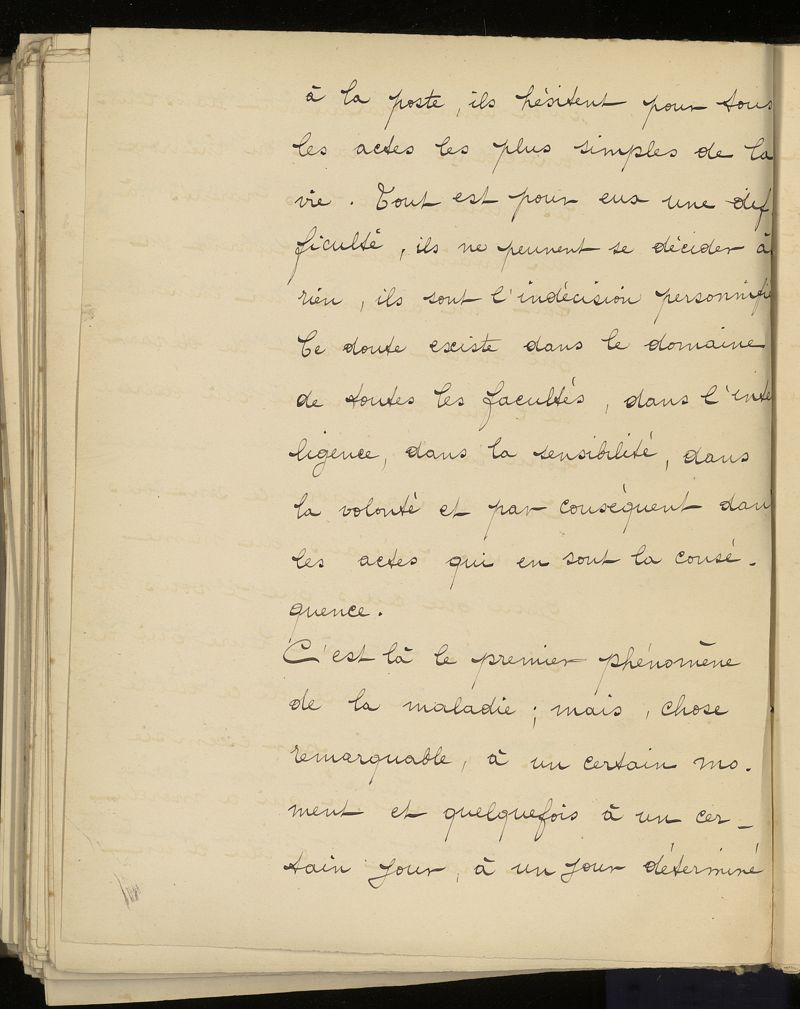 à la poste, ils hésitent pour tous
les actes les plus simples de la
vie. Tout est pour eux une dif
ficulté, ils ne peuvent se décider à
rien, ils sont l'indécision personnifié
Ce doute existe dans le domaine
de toutes les facultés, dans l'inte
ligence, dans la sensibilité, dans
la volonté et par conséquent dans
les actes qui en sont la consé-
quence.
C'est là le premier phénomène
de la maladie; mais, chose
remarquable, à un certain mo-
ment et quelquefois à un cer-
tain jour, à un jour déterminé